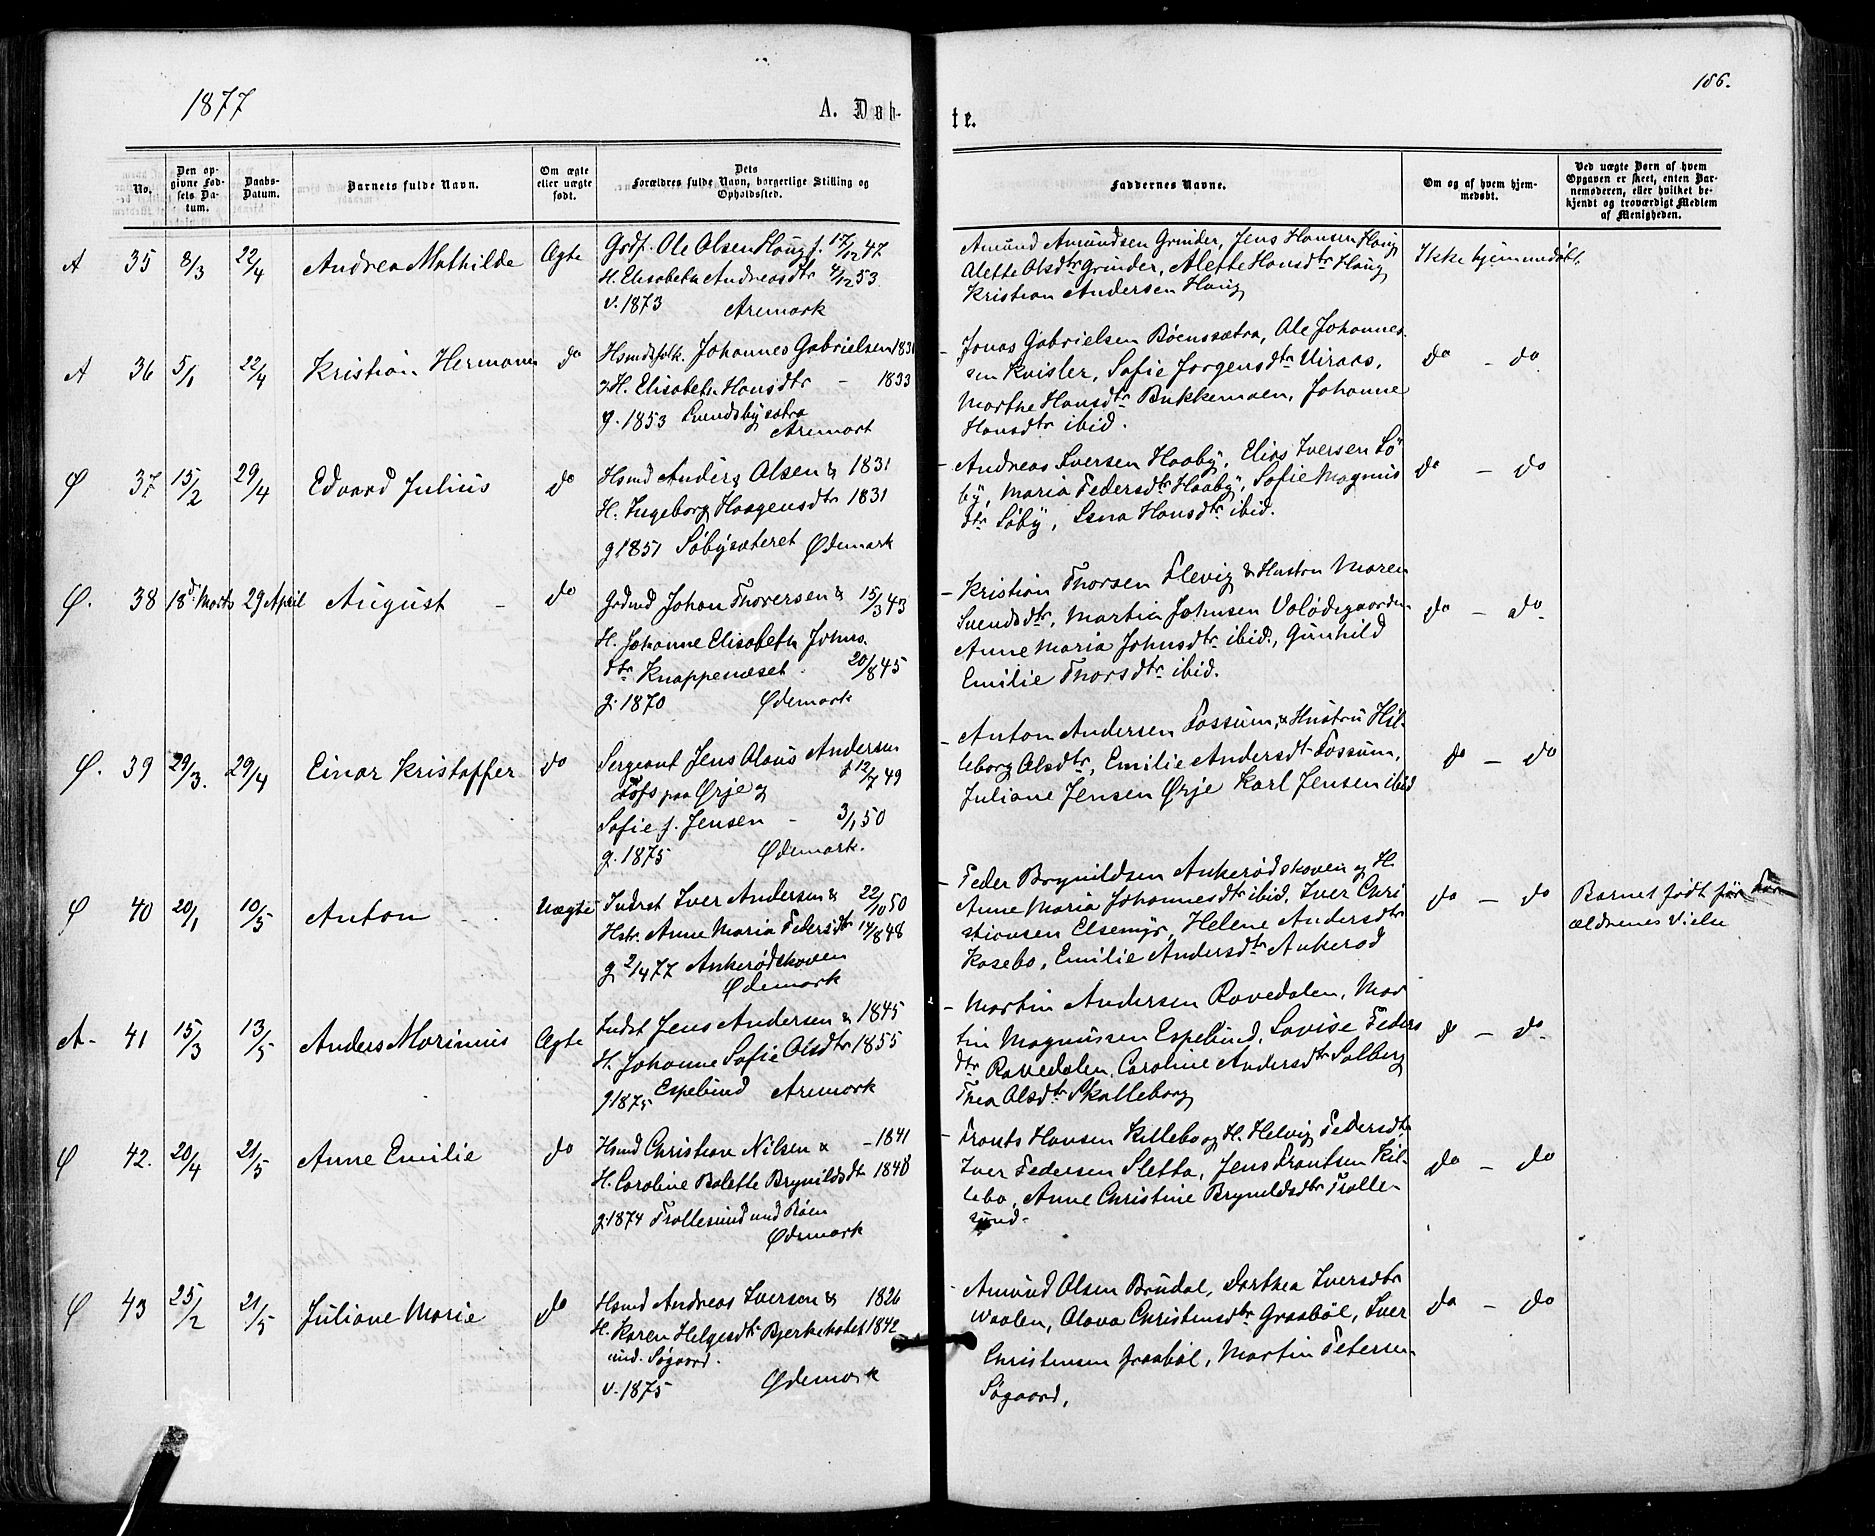 1877
A. Døb-
te.
186.
No.
Den op-
givne Fød-
sels Da-
tum.
Daabs-
Datum.
Barnets fulde Navn.
Om ægte
eller uægte
født.
Dets
Forældres fulde Navn, borgerlige Stilling og
Opholdssted.
Faddernes Navne.
Om og af hvem hjem-
medøbt.
Ved uægte Børn af hvem
Opgaven er skeet, enten Bar-
nemoderen, eller hvilket be-
kjendt og troværdigt Medlem
af Menigheden.
A 35 8/3 22/4 Andrea Mathilde Ægte
Grdf. Ole Olsen Haug f. 17/12 47
H. Elisabeth Andreasdtr 4/12 53
v. 1873 Aremark
Amund Amundsen Grinder, Jens Hansen Haug
Alette Olsdtr Grinder, Alette Hansdtr Haug,
Kristian Andersen Haug
Ikke hjemmedøbt.
A 36 5/1 22/4 Kristian Hermann do
Hsmdsfolk. Johannes Gabrielsen 1831
& H. Elisabeth Hansdtr - 1833
g. 1853 Svendsbysætra
Aremark
- Jonas Gabrielsen Bøenssætra, Ole Johannes-
sen Kvisler, Sofie Jørgensdtr Viraas,
Marthe Hansdtr Bukkemoen, Johanne
Hansdtr ibid.
do - do
Ø 37 15/2 29/4 Edvard Julius do
Hsmd Anders Olsen & 1831
H. Ingeborg Haagensdtr 1831
g 1851 Søbysæteret Ødemark
- Andreas Iversen Haaby, Elias Iversen Sø
by, Maria Pedersdtr Haaby, Sofie Magnus
dtr Søby, Lena Hansdtr ibid.
do - do
Ø. 38 18d Marts 29 April August - do
Grdmd Johan Thoresen & 15/3 43
H. Johanne Elisabeth Johns.
dtr Knappenæset 20/8 45
g. 1870 Ødemark
- Kristian Thorsen Flevig & Hustru Maren
Svendsdtr, Martin Johnsen Volødegaarden
Anne Maria Johnsdtr ibid., Gunhild
Emilie Thorsdtr ibid.
do - do
Ø. 39 29/3. 29/4 Einar Kristoffer do
Sergeant Jens Olaus Andersen
f 12/7 49
Fofs paa Ørje og
Sofie f. Jensen - 3/1 50
g. 1875 Ødemark.
- Anton Andersen Fossum, & Hustru Hil-
leborg Olsdtr, Emilie Andersdt Fossum,
Juliane Jensen Ørje Karl Jensen ibid
do - do
Ø 40 20/1 10/5 Anton - Uægte
Inderst Iver Andersen & 22/10 50
Hstr. Anne Maria Pedersdtr 14/8 48
g 2/4 77 Ankerødskoven
Ødemark
- Peder Brynildsen Ankerødskoven og H.
Anne Maria Johannesdtr ibid, Iver Chri
stiansen Elsemyr, Helene Andersdtr
Kasebo, Emilie Andersdtr Ankerød
do - do
Barnet født før For
ældrenes Vielse
A- 41 15/3 13/5 Anders Marinius Ægte
Indst Jens Andersen & 1845
H. Johanne Sofie Olsdtr 1855
g 1875 Espelund Aremark
- Martin Andersen Ravedalen, Mar
tin Magnussen Espelund, Lovise Peders
dtr Ravedalen, Caroline Andersdtr Solberg
Thea Olsdtr Skolleborg
do - do.
Ø 42. 20/4 21/5 Anne Emilie do
Hsmd Christian Nilsen & - 1841
H. Caroline Bolette Brynildsdtr 1848
g. 1874 Trollesund und Bøen
Ødemark
- Frants Hansen Killebo og H. Helvig Pedersdtr
Iver Pedersen Sletta, Jens Frantsen Kil-
lebo, Anne Christine Brynildsdtr Trolle-
sund-
do - do
Ø 43 25/2 21/5 Juliane Marie do
Hsmd Andreas Iversen & 1826
H. Karen Helgesdtr Bjerkeholet 1842
und. Søgaard.
v. 1875 Ødemark
- Amund Olsen Brudal, Dorthea Iversdtr
Waalen, Olava Christensdtr Graabøl, Iver
Christensen Graabøl, Martin Petersen
Søgaard,
do - do